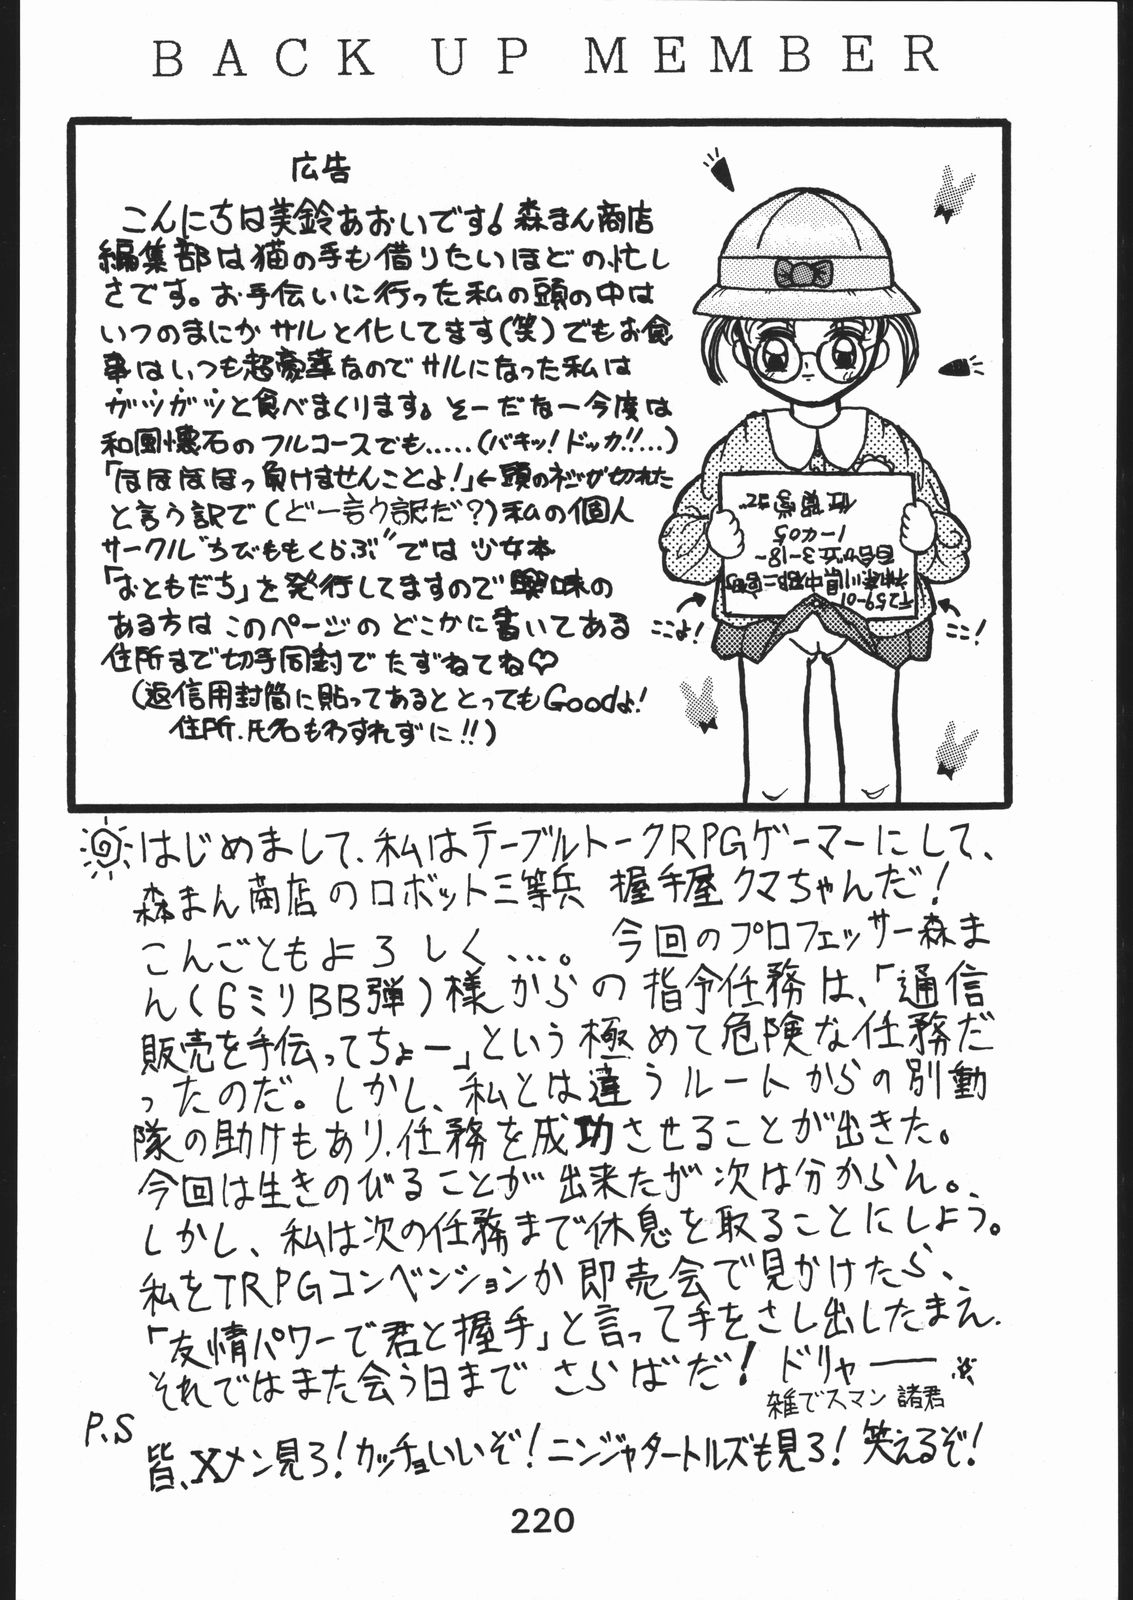 BACK UP MEMBER
広告
こんにちは美鈴あおいです! 森まん商店
編集部は猫の手も借りたいほどの忙し
さです。お手伝いに行った私の頭の中は
いつのまにかサルと化してます(笑)でもお食
事はいつも超豪華なのでサルになった私は
ガツガツと食べまくります。そーだなー今度は
和風懐石のフルコースでも……(バキッ!ドッカ!!…)
「ほほほほっ負けませんことよ!」←頭のネジが切れた
と言う訳で(どー言う訳だ?)私の個人
サークル“ちびももくらぶ”では少女本
「おともだち」を発行してますので興味の
ある方はこのページのどこかに書いてある
住所まで切手同封でたずねてね♡
(返信用封筒に貼ってあるととってもGoodよ!
住所.氏名もわすれずに!!)
〒259-01
神奈川県中郡二宮町
百合が丘3-18-
1-405
ここよ!
ここ!
はじめまして、私はテーブルトークRPGゲーマーにして、
森まん商店のロボット三等兵 握手屋クマちゃんだ!
こんごともよろしく…。 今回のプロフェッサー森ま
ん(6ミリBB弾)様からの指令任務は、「通信
販売を手伝ってちょー」という極めて危険な任務だ
ったのだ。しかし、私とは違うルートからの別動
隊の助けもあり、任務を成功させることが出きた。
今回は生きのびることが出来たが次は分からん。
しかし、私は次の任務まで休息を取ることにしよう。
私をTRPGコンベンションか即売会で見かけたら、
「友情パワーで君と握手」と言って手をさし出したまえ.
それではまた会う日まで さらばだ! ドリャー
雑でスマン諸君
P.S
皆、Xメン見ろ!カッチョいいぞ!ニンジャタートルズも見ろ!笑えるぞ!
220